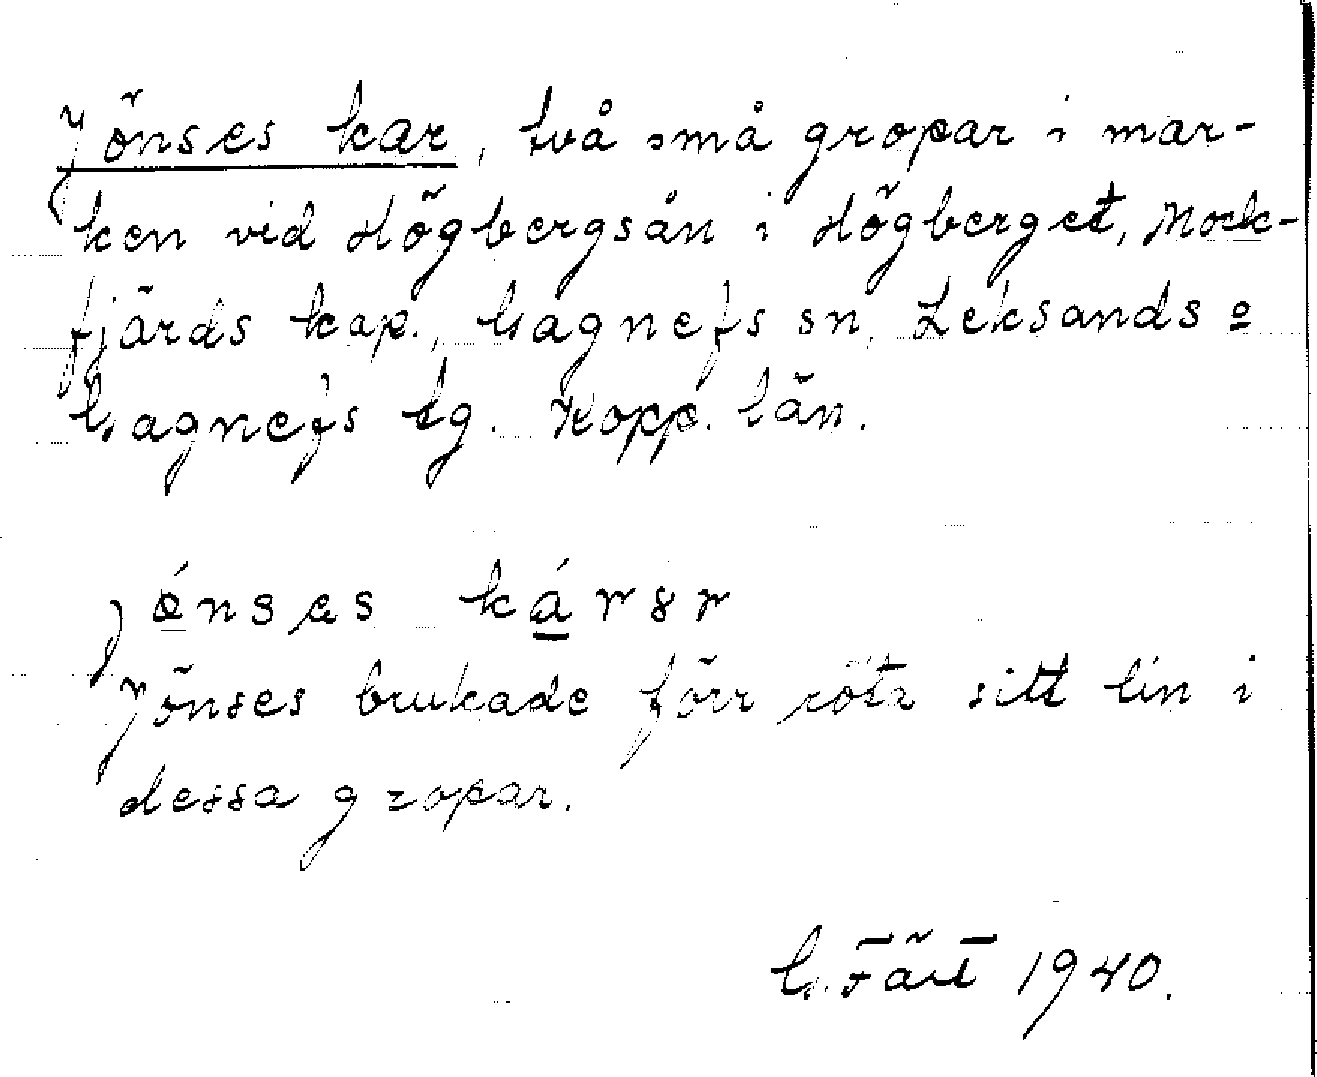 Jönses kar, två små gropar i mar-
ken vid Högbergsån i Högberget, Mock-
fjärds kap., Gagnefs sn, Leksands o
Gagnefs tg. Kopp. län.
jǿnses kár
Jönses brukade förr röta sitt lin i
dessa gropar.
G. 1940.